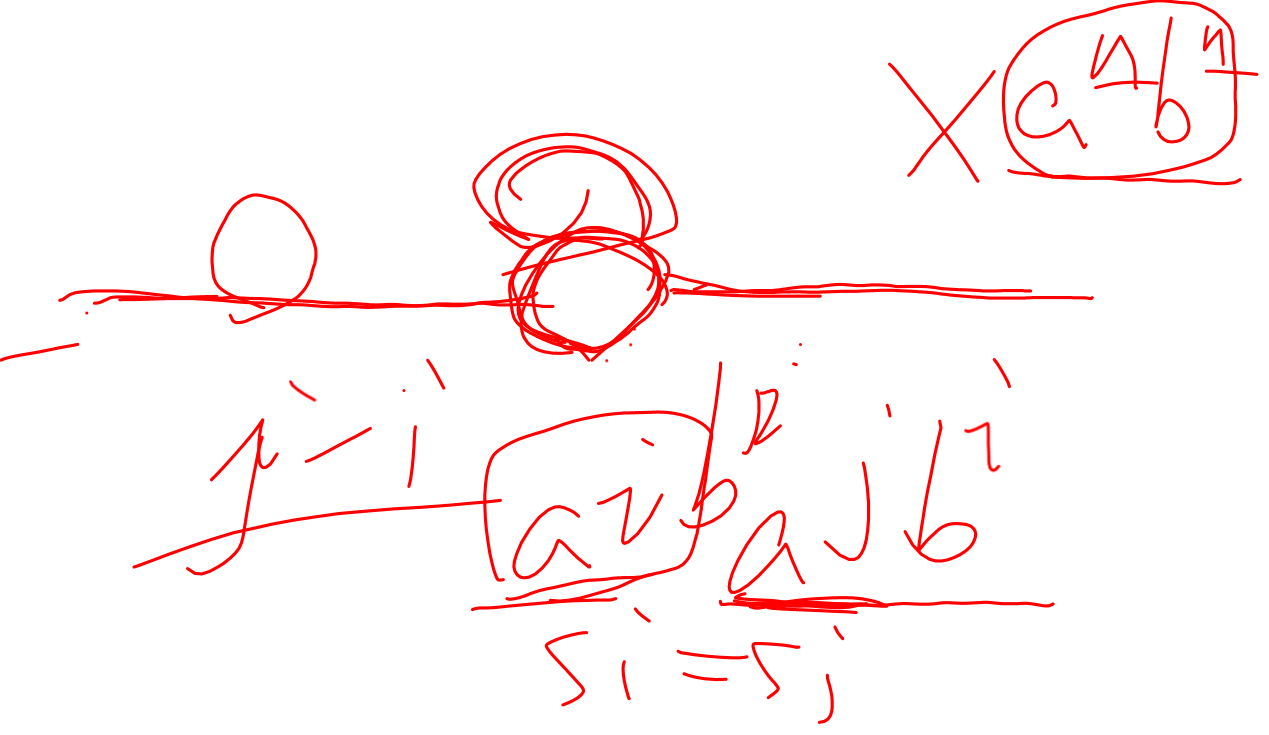 X aⁿbⁿ
j - i
aⁱb aʲb
Si = Sj